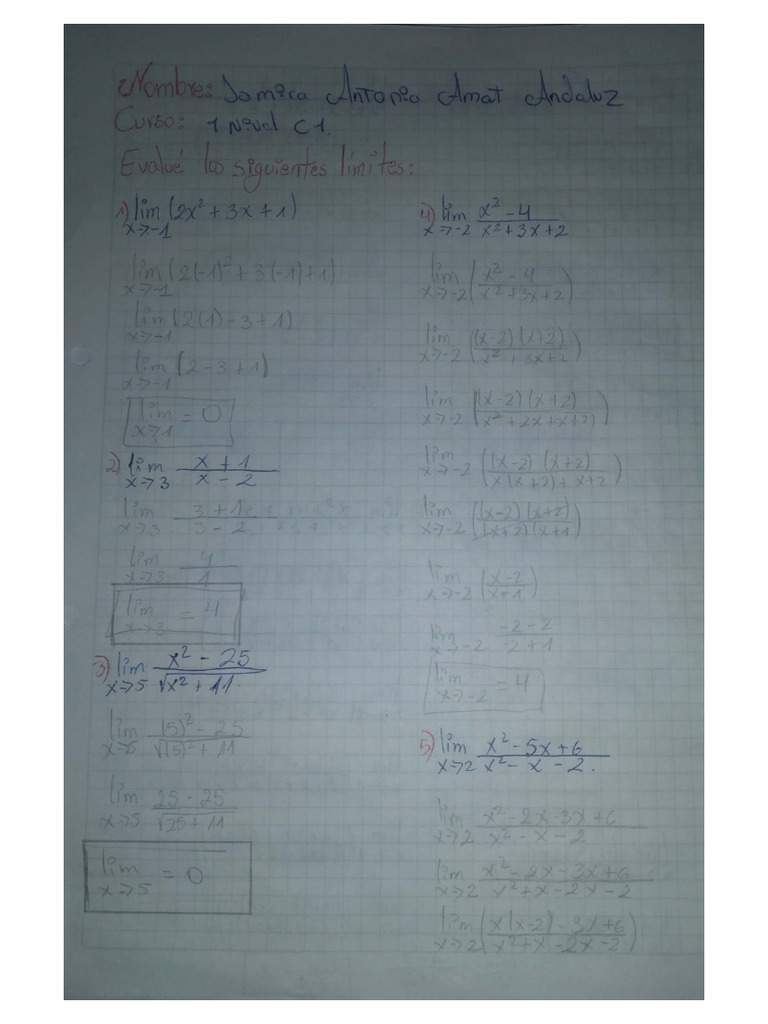 Nombre: Jomira Antonia Amat Andaluz
Curso: 1 Nivel C1.
Evalué los siguientes límites:
1) lim x→-1 (2x² + 3x + 1)
lim x→-1 (2(-1)² + 3(-1)+1)
lim x→-1 (2(1) - 3 + 1)
lim x→-1 (2 - 3 + 1)
lim x→1 = 0
2) lim x→3 x + 1 / x - 2
lim x→3 3 + 1 / 3 - 2
lim x→3 4 / 1
lim x→3 = 4
3) lim x→5 x² - 25 / √x² + 11.
lim x→5 (5)² - 25 / √(5)² + 11
lim x→5 25 - 25 / √25 + 11
lim x→5 = 0
4) lim x→-2 x² - 4 / x² + 3x + 2
lim x→-2 (x² - 4 / x² + 3x + 2)
lim x→-2 ((x-2) (x+2) / x² + 3x + 2)
lim x→-2 ((x-2) (x+2) / x² + 2x + x + 2)
lim x→-2 ((x-2) (x+2) / x(x+2) + x+2)
lim x→-2 ((x-2) (x+2) / (x+2) (x+1))
lim x→-2 (x-2 / x+1)
lim x→-2 -2 - 2 / -2 + 1
lim x→-2 = 4
5) lim x→2 x² - 5x + 6 / x² - x - 2.
lim x→2 x² - 2x - 3x + 6 / x² - x - 2
lim x→2 x² - 2x - 3x + 6 / x² + x - 2x - 2
lim x→2 (x(x-2) - 3x + 6 / x² + x - 2x - 2)